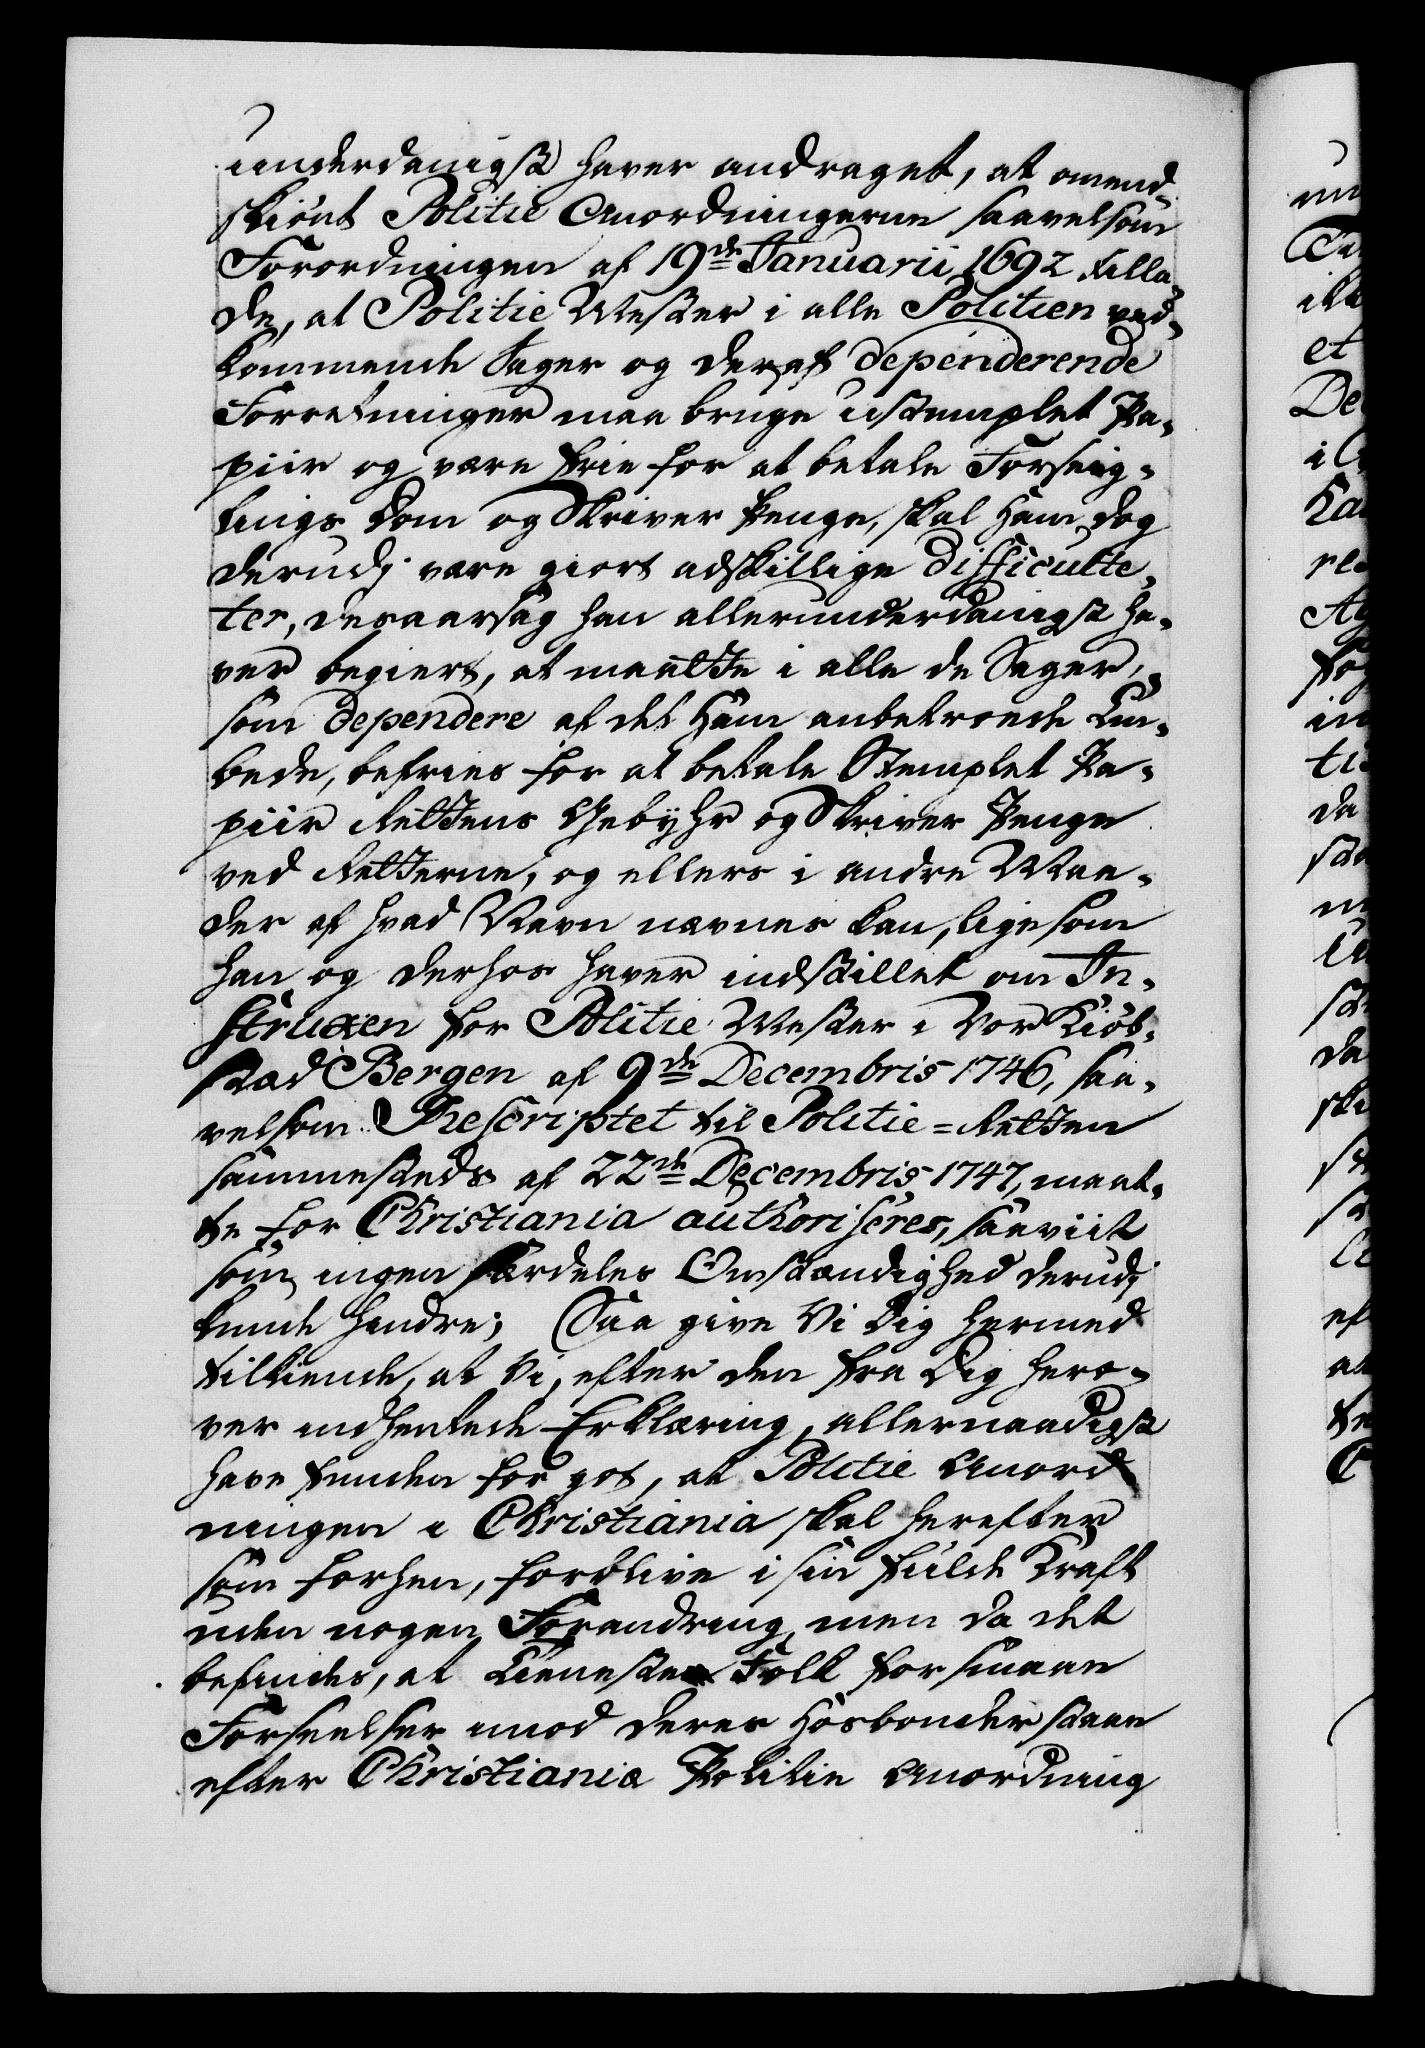 underdanigst haver andraget, at omend-
skiønt Politie Anordningerne saavelsom
Forordningen af 19de Januarii 1692 tilla-
de, at Politie Mester i alle Politien ved-
kommende Sager og deraf dependerende
Forretninger maa bruge ustemplet Pa-
piir og være frie for at betale Forseig-
lings Dom og Skriver Penge, skal ham dog
derudj være giort adskillige Difficulte-
ter, desaarsag han allerunderdanigst ha-
ver begiert, at maatte i alle de Sager,
som dependere af det ham anbetroede Em-
bede, befries for at betale Stemplet Pa-
piir Rettens Gebyhr og Skriver Penge
ved Retterne, og ellers i andre Maa-
der af hvad Navn nævnes kan, ligesom
han og derhos haver indstillet om In-
struxen for Politie Mester i Vor Kiøb-
stad Bergen af 9de Decembris 1746, saa-
velsom Rescriptet til Politie=Retten
sammesteds af 22de Decembris 1747, maat-
te for Christiania authoriseres, saaviit
som ingen særdeles Omstændighed derudj
kunde hindre; Saa give Vi Dig hermed
tilkiende, at Vi, efter den fra Dig hero-
ver indhentede Erklæring, allernaadigst
have funden for got, at Politie Anord
ningen i Christiania skal herefter
som forhen, forblive i sin fulde Kraft
uden nogen Forandring, men da det
befindes, at Tieneste Folk for smaae
Forseelser imod deres Hosbonder staae
efter Christiania Politie Anordning